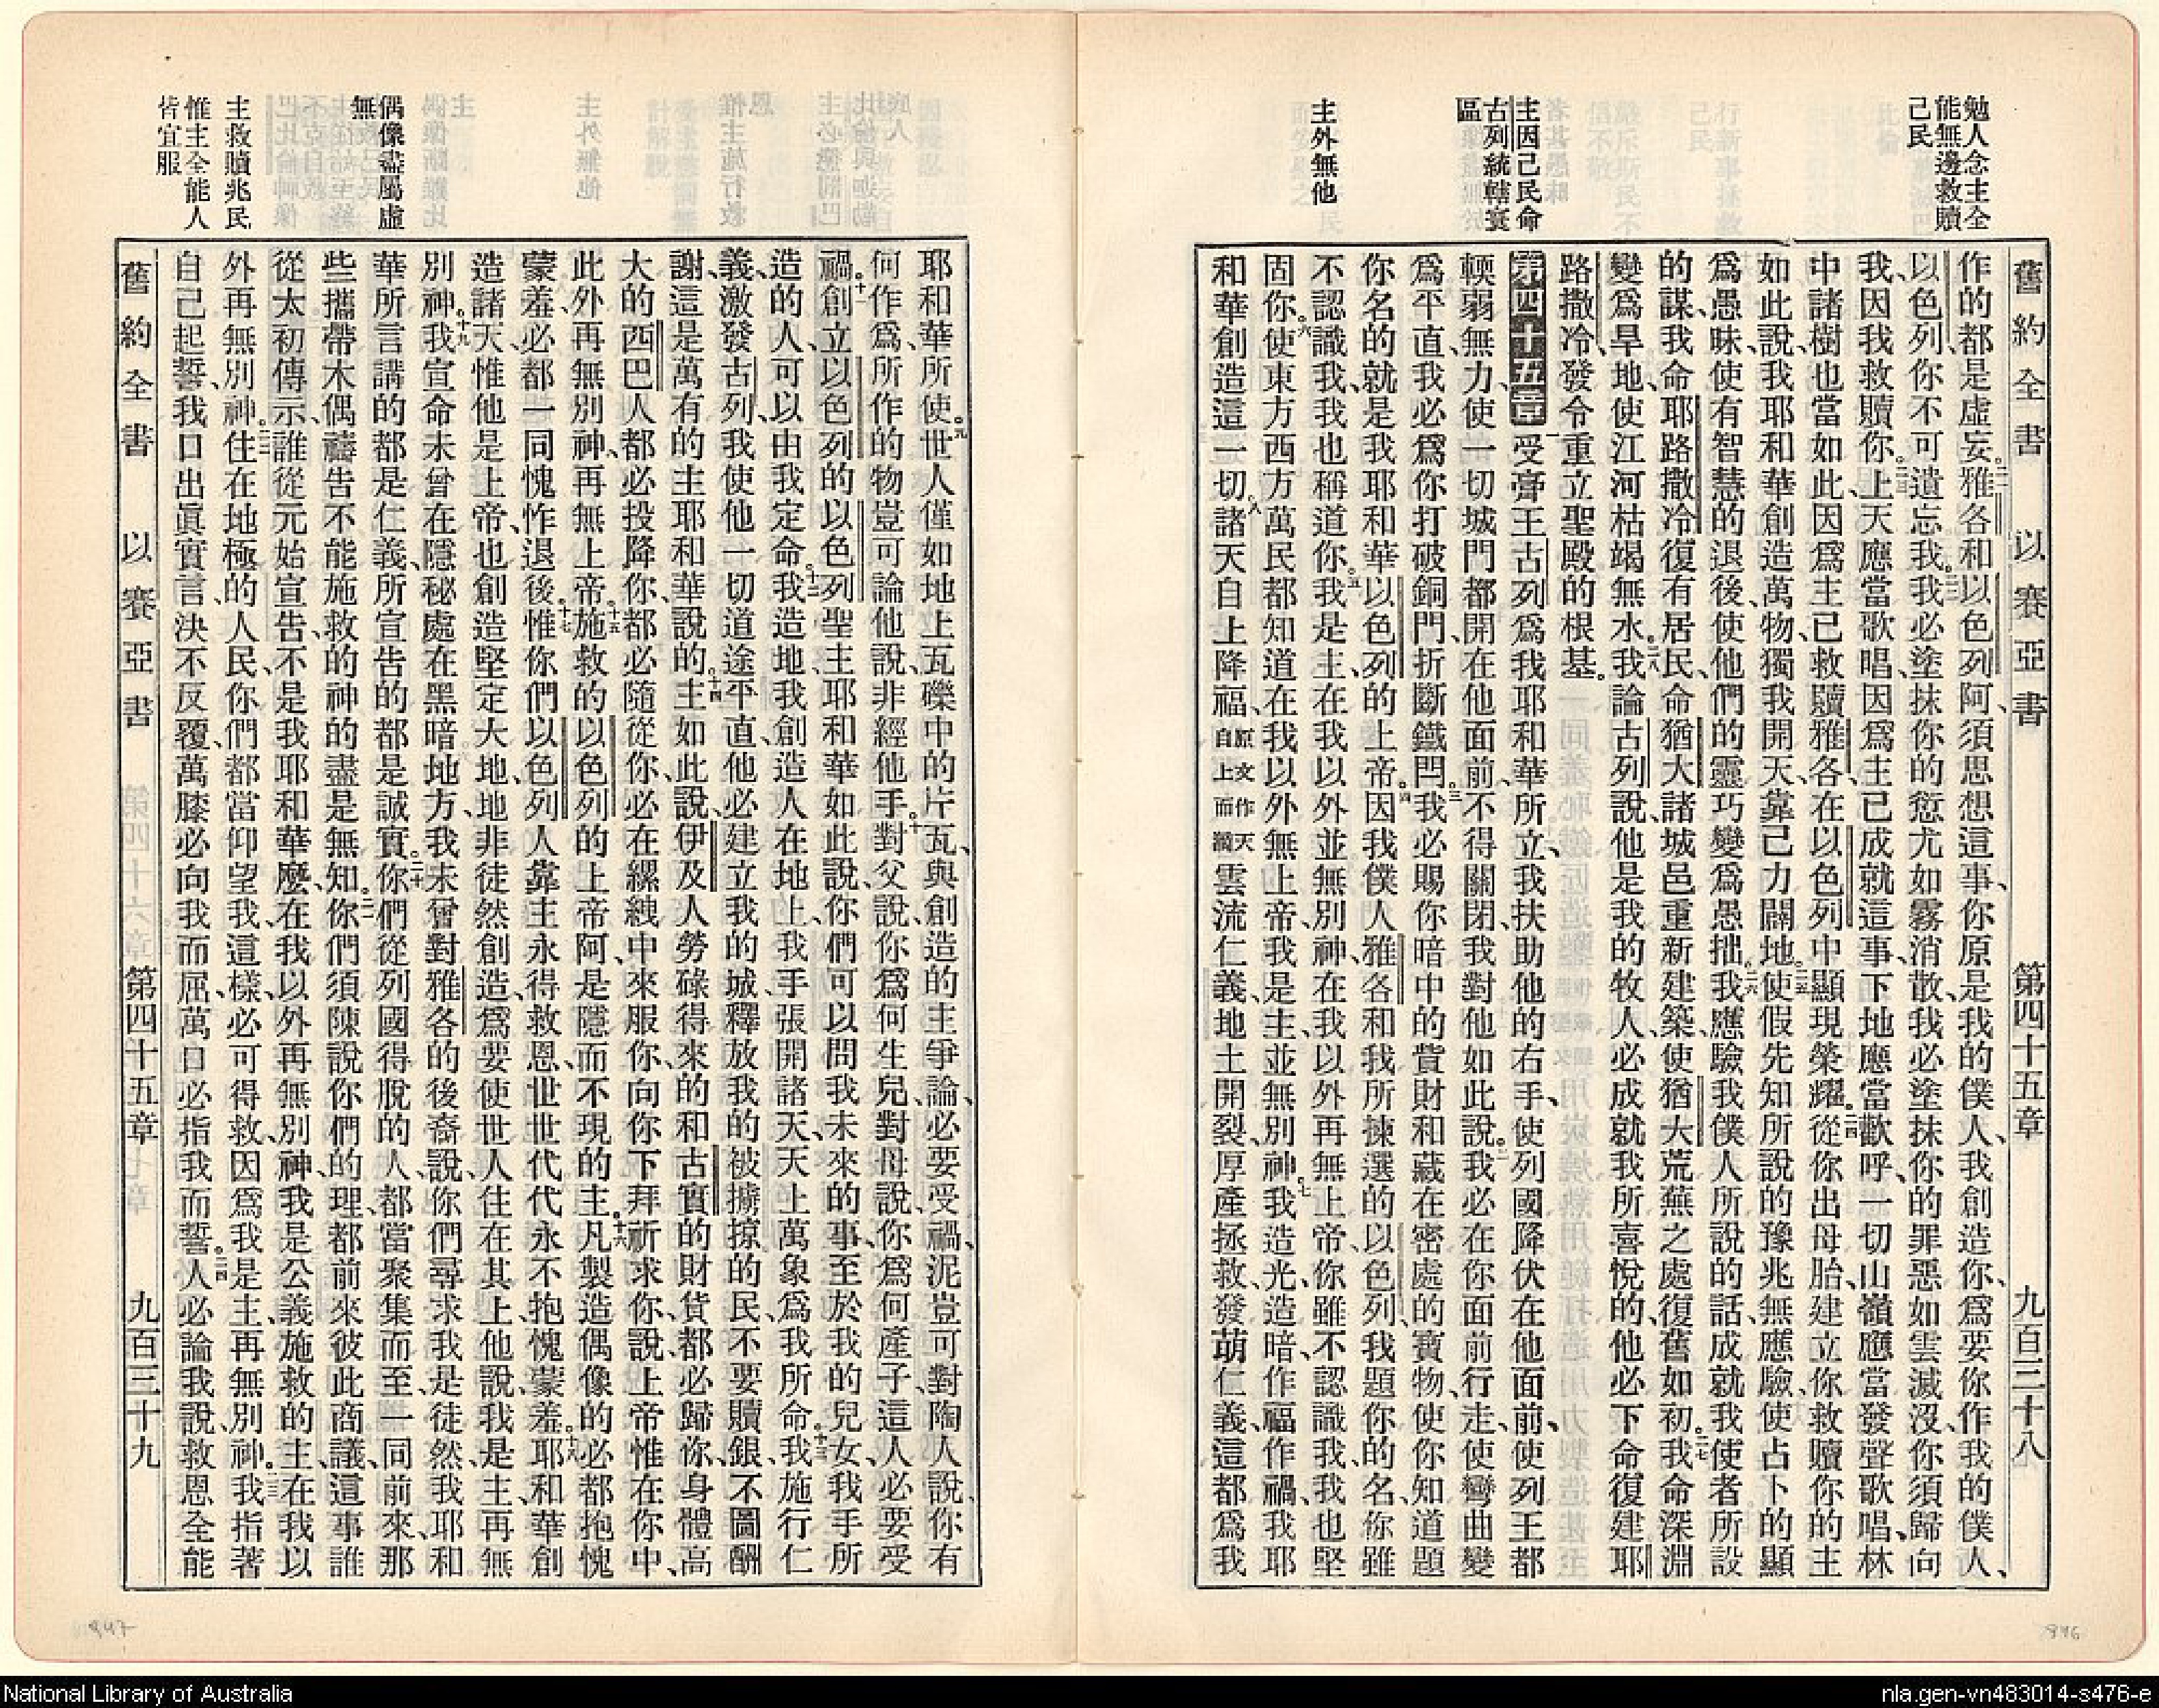 勉人念主全
能無邊救贖
己民
主因己民命
古列統轄寰
區
主外無他
舊約全書 以賽亞書 第四十五章 九百三十八
作的都是虛妄。二一雅各和以色列阿、須思想這事、你原是我的僕人、我創造你、爲要你作我的僕人、
以色列、你不可遺忘我。二二我必塗抹你的愆尤如霧消散、我必塗抹你的罪惡如雲滅沒、你須歸向
我、因我救贖你。二三上天應當歌唱、因爲主已成就這事、下地應當歡呼、一切山嶺應當發聲歌唱、林
中諸樹也當如此、因爲主已救贖雅各、在以色列中顯現榮耀。二四從你出母胎、建立你救贖你的主
如此說、我耶和華創造萬物、獨我開天、靠己力闢地。二五使假先知所說的豫兆無應驗、使占卜的顯
爲愚昧、使有智慧的退後、使他們的靈巧變爲愚拙。二六我應驗我僕人所說的話、成就我使者所設
的謀、我命耶路撒冷復有居民、命猶大諸城邑重新建築、使猶大荒蕪之處復舊如初。二七我命深淵
變爲旱地、使江河枯竭無水。二八我論古列說、他是我的牧人、必成就我所喜悅的、他必下命復建耶
路撒冷、發令重立聖殿的根基。
第四十五章 一受膏王古列爲我耶和華所立、我扶助他的右手、使列國降伏在他面前、使列王都
輭弱無力、使一切城門都開在他面前、不得關閉、我對他如此說。二我必在你面前行走、使彎曲變
爲平直、我必爲你打破銅門、折斷鐵閂。三我必賜你暗中的貲財和藏在密處的寶物、使你知道題
你名的就是我耶和華以色列的上帝。四因我僕人雅各和我所揀選的以色列、我題你的名、你雖
不認識我、我也稱道你。五我是主、在我以外並無別神、在我以外再無上帝、你雖不認識我、我也堅
固你。六使東方西方萬民都知道在我以外無上帝、我是主、並無別神。七我造光、造暗、作福作禍、我耶
和華創造這一切。八諸天自上降福、原文作天自上而滴雲流仁義、地土開裂、厚產拯救、發萌仁義、這都爲我
偶像盡屬虛
無
主救贖兆民
惟主全能人
皆宜服
耶和華所使。九世人僅如地上瓦礫中的片瓦、與創造的主爭論、必要受禍、泥豈可對陶人說、你有
何作爲、所作的物豈可論他說、非經他手。十對父說、你爲何生兒、對母說、你爲何產子、這人必要受
禍。十一創立以色列的以色列聖主耶和華如此說、你們可以問我未來的事、至於我的兒女、我手所
造的人、可以由我定命。十二我造地、我創造人在地上、我手張開諸天、天上萬象爲我所命。十三我施行仁
義、激發古列、我使他一切道途平直、他必建立我的城、釋放我的被擄掠的民、不要贖銀、不圖酬
謝、這是萬有的主耶和華說的。十四主如此說、伊及人勞碌得來的和古實的財貨都必歸你、身體高
大的西巴人都必投降你、都必隨從你、必在縲絏中來服你、向你下拜祈求你、說、上帝惟在你中、
此外再無別神、再無上帝。十五施救的以色列的上帝阿、是隱而不現的主。十六凡製造偶像的必都抱愧
蒙羞、必都一同愧怍退後。十七惟你們以色列人靠主永得救恩、世世代代永不抱愧蒙羞。十八耶和華創
造諸天、惟他是上帝、也創造堅定大地、地非徒然創造、爲要使世人住在其上、他說、我是主、再無
別神。十九我宣命未曾在隱秘處在黑暗地方、我未曾對雅各的後裔說、你們尋求我是徒然、我耶和
華所言講的都是仁義、所宣告的都是誠實。二十你們從列國得脫的人、都當聚集而至、一同前來、那
些攜帶木偶禱告不能施救的神的盡是無知。二一你們須陳說你們的理、都前來彼此商議、這事誰
從太初傳示、誰從元始宣告、不是我耶和華麼、在我以外再無別神、我是公義施救的主、在我以
外再無別神。二二住在地極的人民、你們都當仰望我、這樣、必可得救、因爲我是主、再無別神。二三我指著
自己起誓、我口出眞實言、決不反覆、萬膝必向我而屈、萬口必指我而誓。二四人必論我說、救恩全能
舊約全書 以賽亞書 第四十五章 九百三十九
947
946
National Library of Australia
nla.gen-vn483014-s476-e